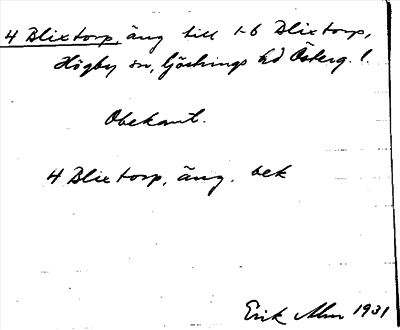 4 Blixtorp, äng till 1-6 Blixtorp,
Högby sn, Göstrings hd Österg. l.
Obekant.
4 Blixtorp, äng. bek
Erik Alm 1931